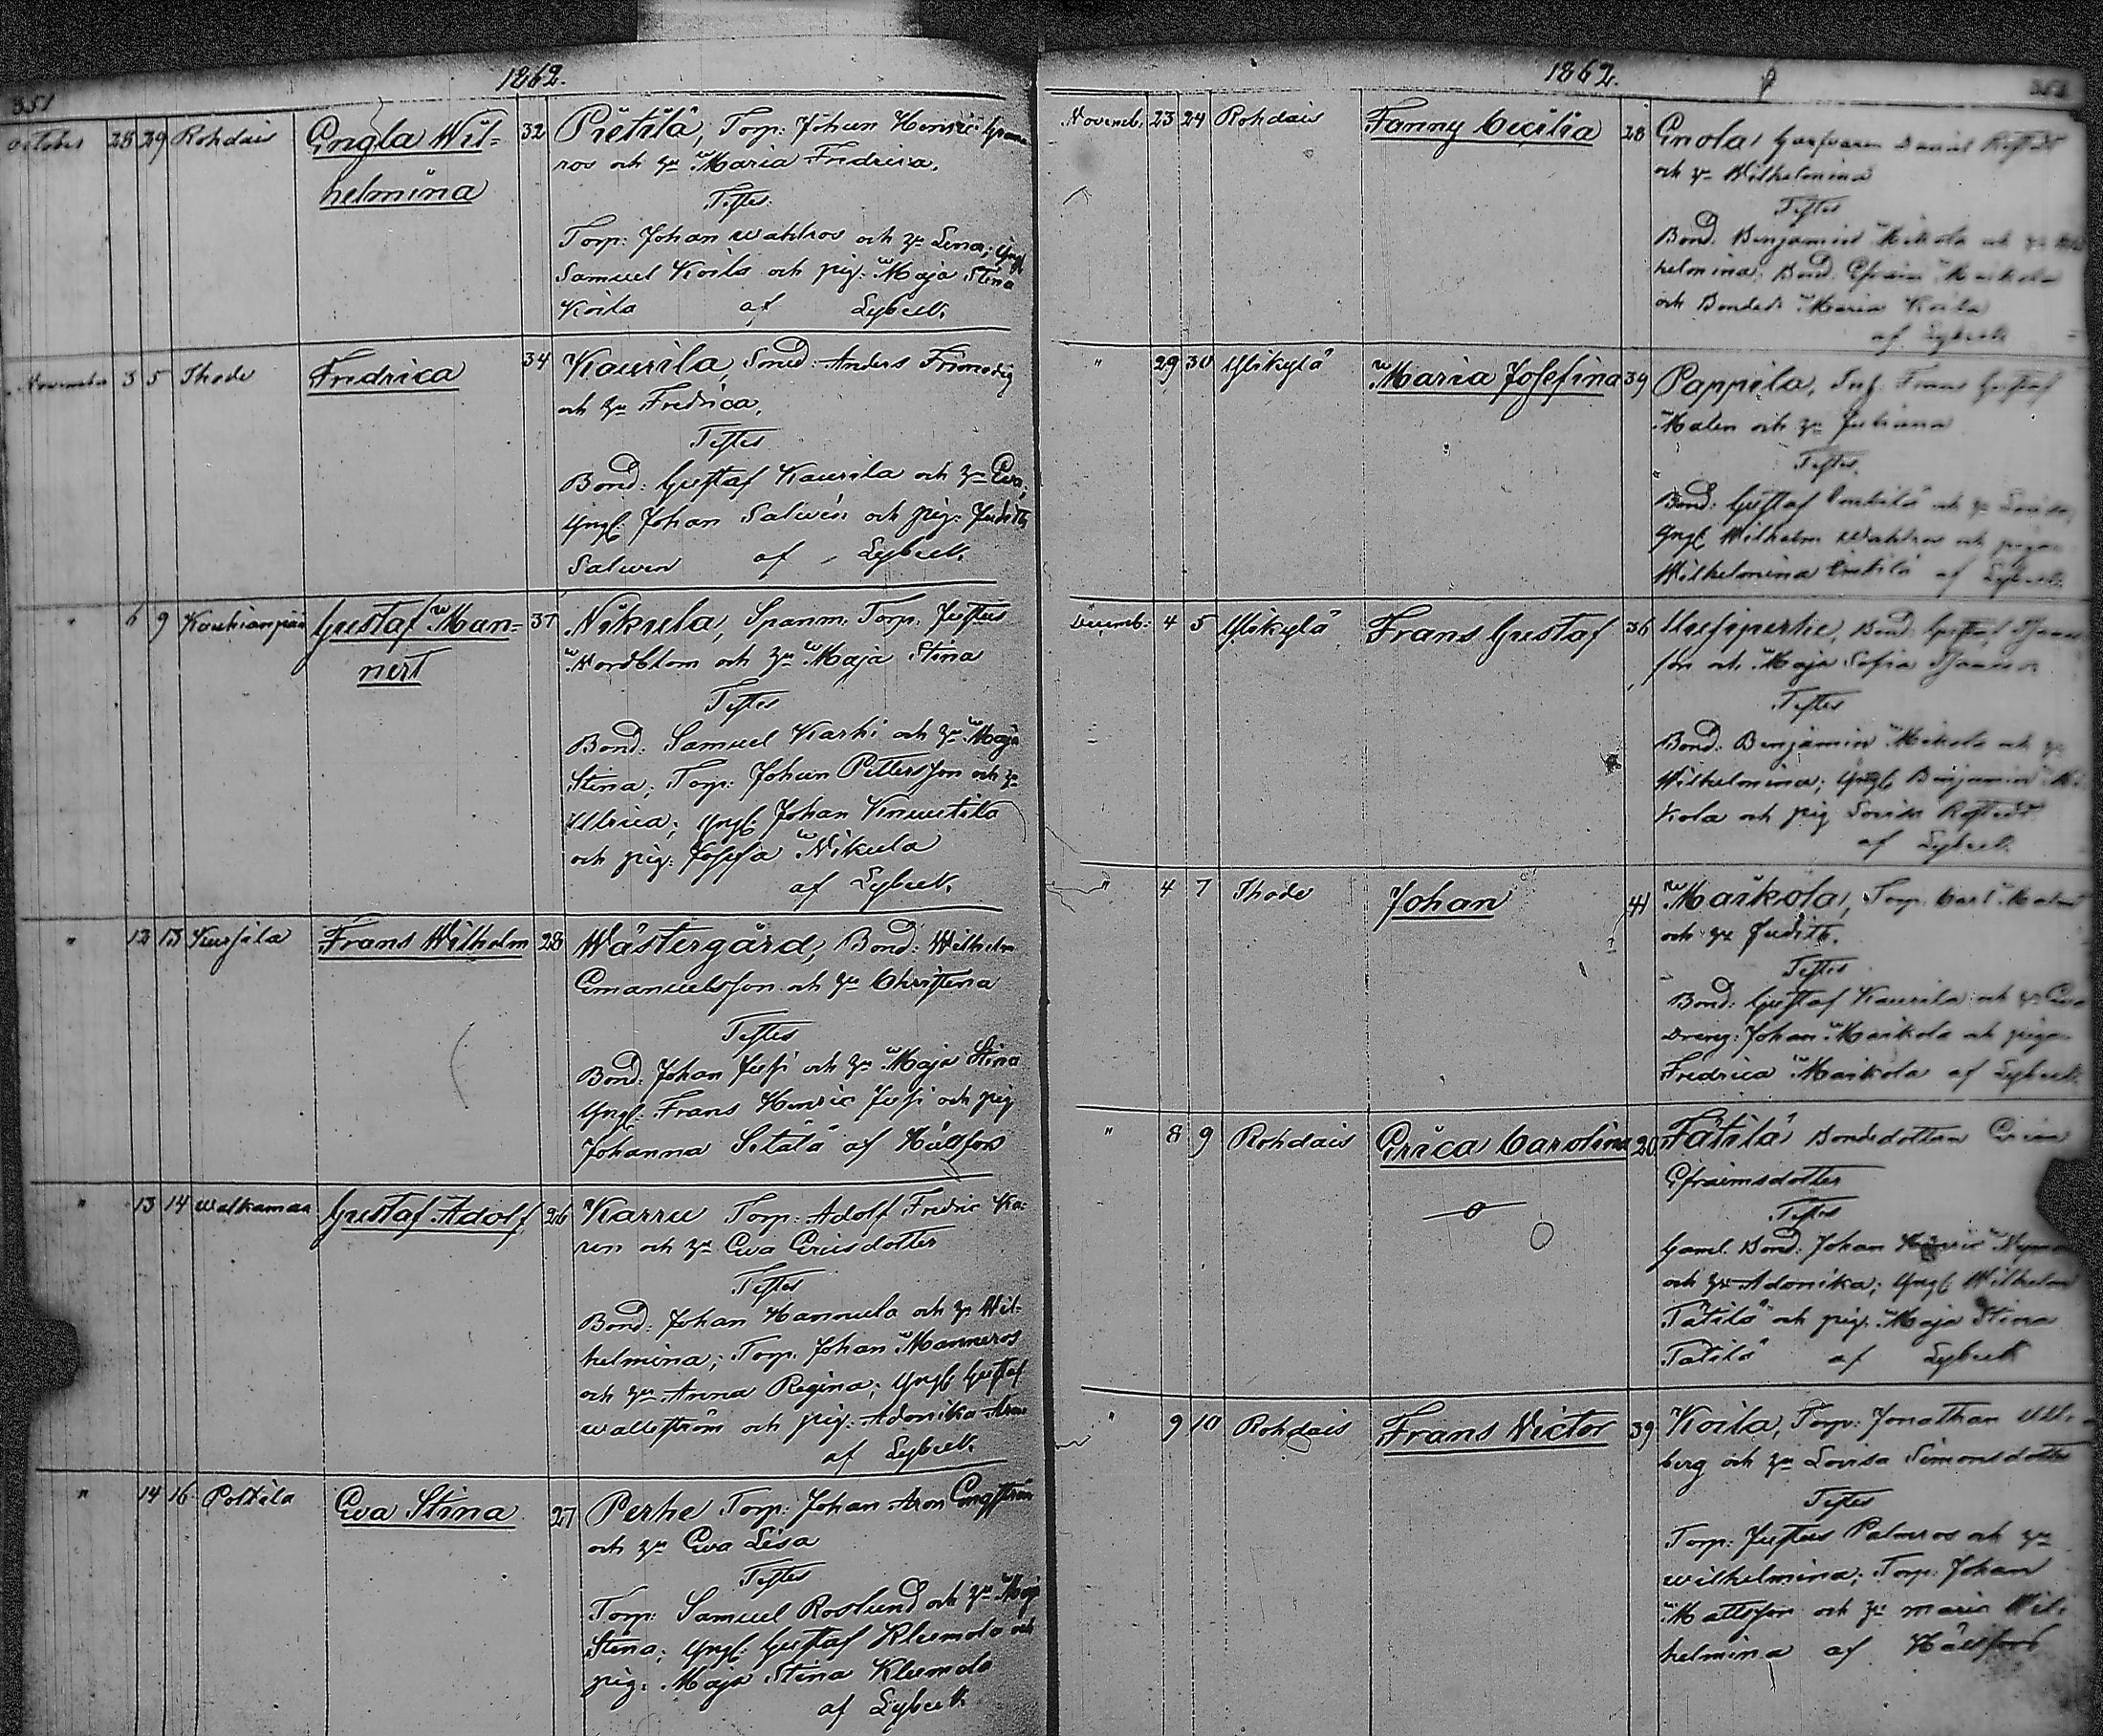 1862.
351
October 28 29 Rohdais Engla Wil- 32 Pietilä, Torp: Johan Henric
helmina ros och h:u Maria Fredrica.
Testes
Torp: Johan Wahlros och h:u Lena; Yngl
Samuel Koila och pig: Maja Stina
Koila af Lybeck.
November 3 5 Thode Fredrica 34 Kaurila, Smed: Anders
och h:u Fredrica,
Testes
Bond: Gustaf Kaurila och h:u Eva,
Yngl: Johan Salvén och pig: Judith
Salwen af Lybeck.
" 6 9 Kauhianpää Gustaf Man- 37 Nikula, Spanm. Torp: Justus
nert Nordblom och h:u Maja Stina
Testes
Bond: Samuel Karhi och h:u Maja
Stina; Torp: Johan Pettersson och h:u
Ulrica; Yngl: Johan Knuutila
och pig: Josefa Nikula
af Lybeck.
" 12 13 Kursila Frans Wilhelm 28 Wästergård, Bond: Wilhelm
Emanuelsson och h:u Christina
Testes
Bond: Johan Jussi och h:u Maja Stina
Yngl: Frans Henric Jussi och pig
Johanna Sätälä af Hällfors
" 13 14 Walkamaa Gustaf Adolf 26 Karru Torp: Adolf Fredric Ka-
ren och h:u Eva Ericsdotter
Testes
Bond: Johan Hannula och h:u Wil-
helmina; Torp. Johan Manneros
och h:u Anna Regina; Yngl Gustaf
Walleström och pig: Adonika
af Lybeck.
" 14 16 Polttila Eva Stina 27 Perhe Torp: Johan Aron Engström
och h:u Eva Lisa
Testes
Torp: Samuel Roslund och h:u Maja
Stina; Yngl: Gustaf Kleemola och
pig: Maja Stina Kleemola
af Lybeck.
1862.
Novemb. 23 24 Rohdais Fanny Cecilia 28 Enola, Daniel
och h:u Wilhelmina
Testes
Bond. Benjamin Mikola och h:u Wil
helmina; Bond. Efraim Maikola
och Bonded: Maria Koila
af Lybeck
" 29 30 Ylikylä Maria Josefina 34 Pappila, Frans Gustaf
Malen och h:u Juliana
Testes.
Bond: Gustaf och h:u Lovisa,
Yngl Wilhelm Wahlros och pigan
Wilhelmina af Lybeck.
Decemb: 4 5 Ylikylä Frans Gustaf 36 Bond: Gustaf
son och Maja Sofia
Testes
Bond: Benjamin Mikola och h:u
Wilhelmina; Yngl Benjamin Mi
kola och pig Lovisa
af Lybeck.
" 4 7 Thode Johan 41 Maikola, Torp. Carl
och h:u Judith.
Testes
Bond: Gustaf Kaurila och h:u Eva
Dreng: Johan Maikola och pigan
Fredrica Maikola af Lybeck.
" 8 9 Rohdais Erica Carolina 20 Tätilä Bondedottren Erica
Efraimsdotter
Testes
Gaml. Bond: Johan Henric
och h:u Adonika; Yngl Wilhelm
Tätilä och pig. Maja Stina
Tätilä af Lybeck
" 9 10 Rohdais Frans Victor 39 Koila, Torp: Jonathan
berg och h:u Lovisa Simonsdotter
Testes
Torp: Justus Palmros och h:u
Wilhelmina; Torp: Johan
Mattsson och h:u Maria Wil-
helmina af Hällfors